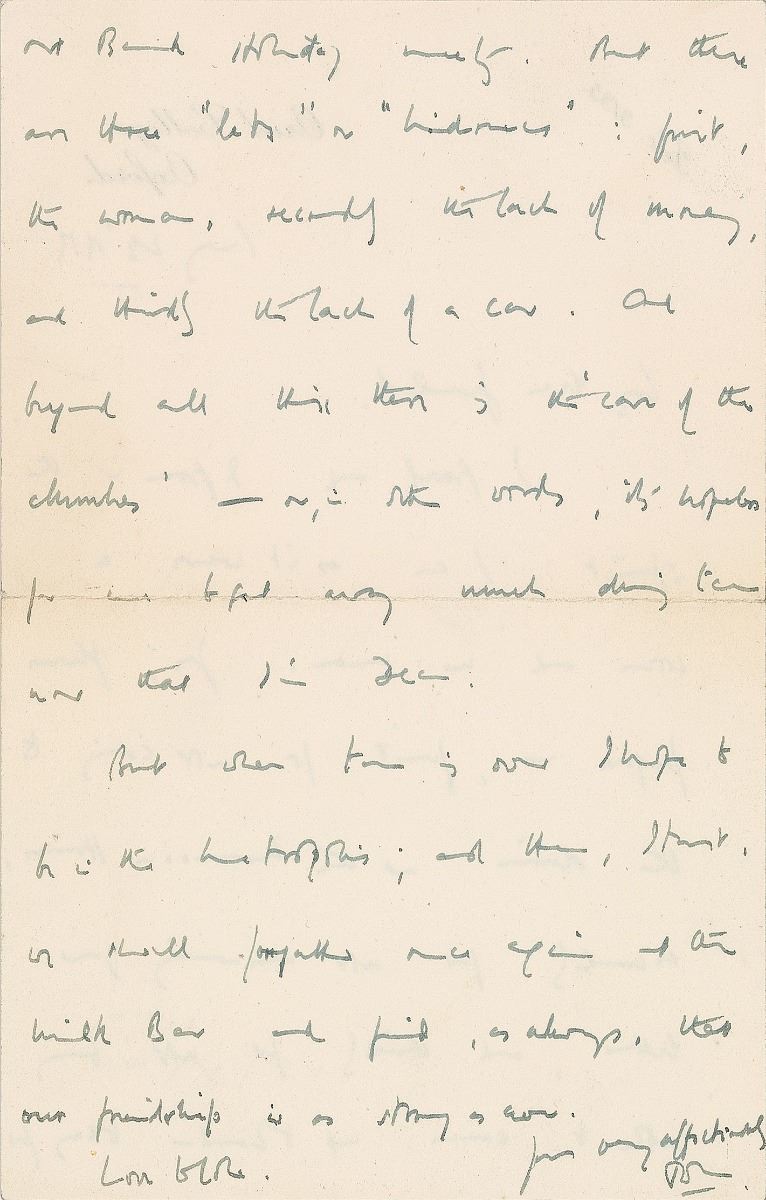 out Bank Holiday merely. But there
are three "lets" or "hindrances" : first,
the woman, secondly the lack of money,
and thirdly the lack of a car. And
beyond all this there is the "care of the
churches" — or, in other words, it's hopeless
for me to get away much during term
now that I'm Dean.
But when term is over I hope to
be in the metropolis; and then, I trust,
we shall forgather once again at the
Milk Bar and find, as always, that
our friendship is as strong as ever.
Yours very affectionately
Love to